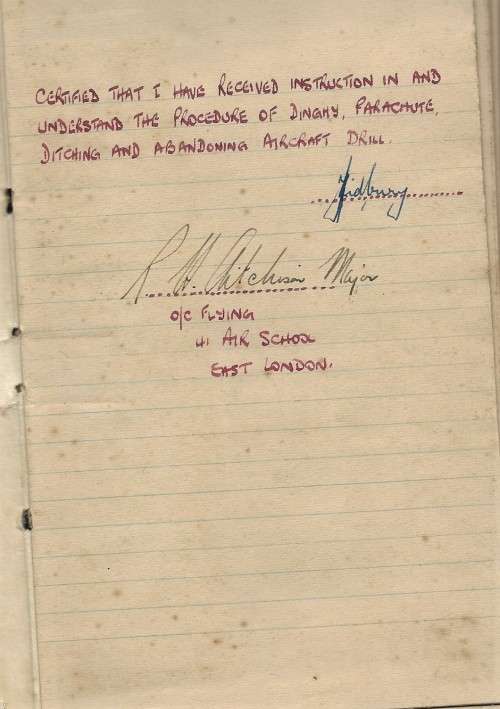 CERTIFIED THAT I HAVE RECEIVED INSTRUCTION IN AND
UNDERSTAND THE PROCEDURE OF DINGHY, PARACHUTE,
DITCHING AND ABANDONING AIRCRAFT DRILL.
Tidbury
R. H. Aitchison Major
O/C FLYING
41 AIR SCHOOL
EAST LONDON.